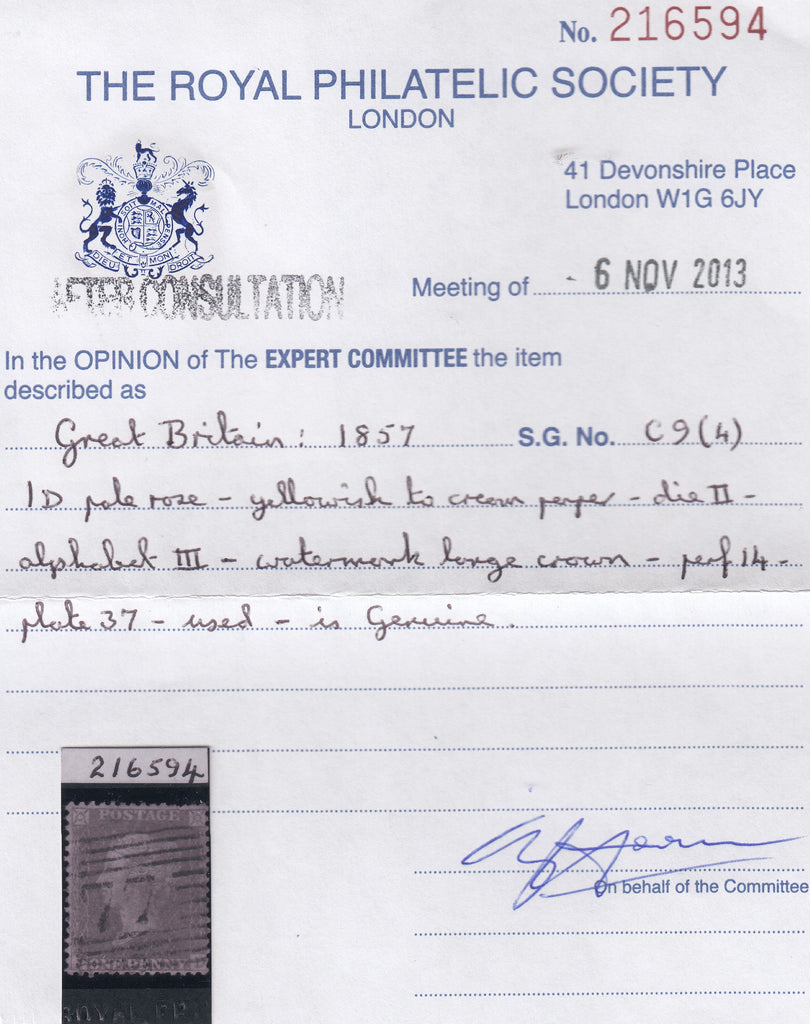 No. 216594
THE ROYAL PHILATELIC SOCIETY
LONDON
41 Devonshire Place
London W1G 6JY
SOIT QUI MAL Y PENSE HONI
DIEU ET MON DROIT
AFTER CONSULTATION
Meeting of - 6 NOV 2013
In the OPINION of The EXPERT COMMITTEE the item
described as
Great Britain: 1857 S.G. No. C9(4)
1D pale rose - yellowish to cream paper - die II -
alphabet III - watermark large crown - perf 14 -
plate 37 - used - is Genuine.
216594
POSTAGE
ONE PENNY
ROYAL
On behalf of the Committee